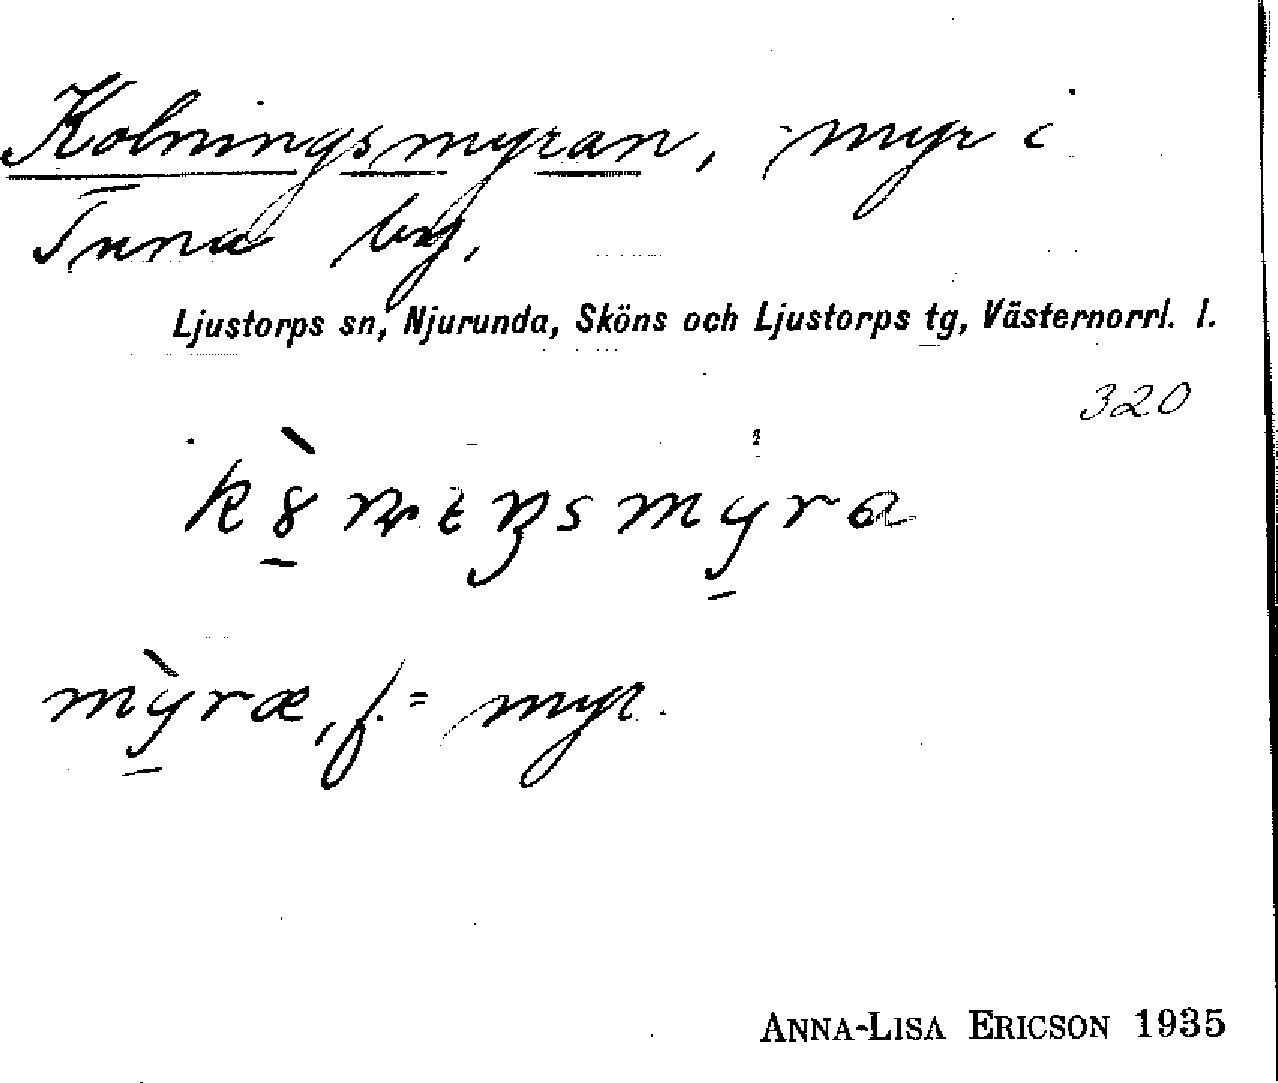 Kolningsmyran, myr i
Tunna by.
Ljustorps sn, Njurunda, Sköns och Ljustorps tg, Västernorrl. l.
320
mỳræ, f. = myr.
ANNA-LISA ERICSON 1935